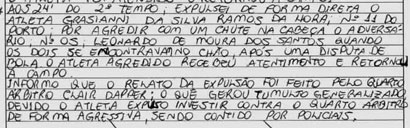 AOS 24' DO 2º TEMPO, EXPULSEI DE FORMA DIRETA O
ATLETA GRASIANNI DA SILVA RAMOS DA HORA, Nº 11 DO
PORTO, POR AGREDIR COM UM CHUTE NA CABEÇA O ADVERSÁ-
RIO Nº 05, LEONARDO DE MOURA DOS SANTOS QUANDO
OS DOIS SE ENCONTRAVAM NO CHÃO, APÓS UMA DISPUTA DE
BOLA O ATLETA AGREDIDO RECEBEU ATENTIMENTO E RETORNOU
A CAMPO.
INFORMO QUE O RELATO DA EXPULSÃO FOI FEITO PELO QUARTO
ÁRBITRO CLAIR DAPPER; O QUE GEROU TUMULTO GENERALIZADO
DEVIDO O ATLETA EXPULSO INVESTIR CONTRA O QUARTO ÁRBITRO
DE FORMA AGRESSIVA, SENDO CONTIDO POR POLICIAIS.